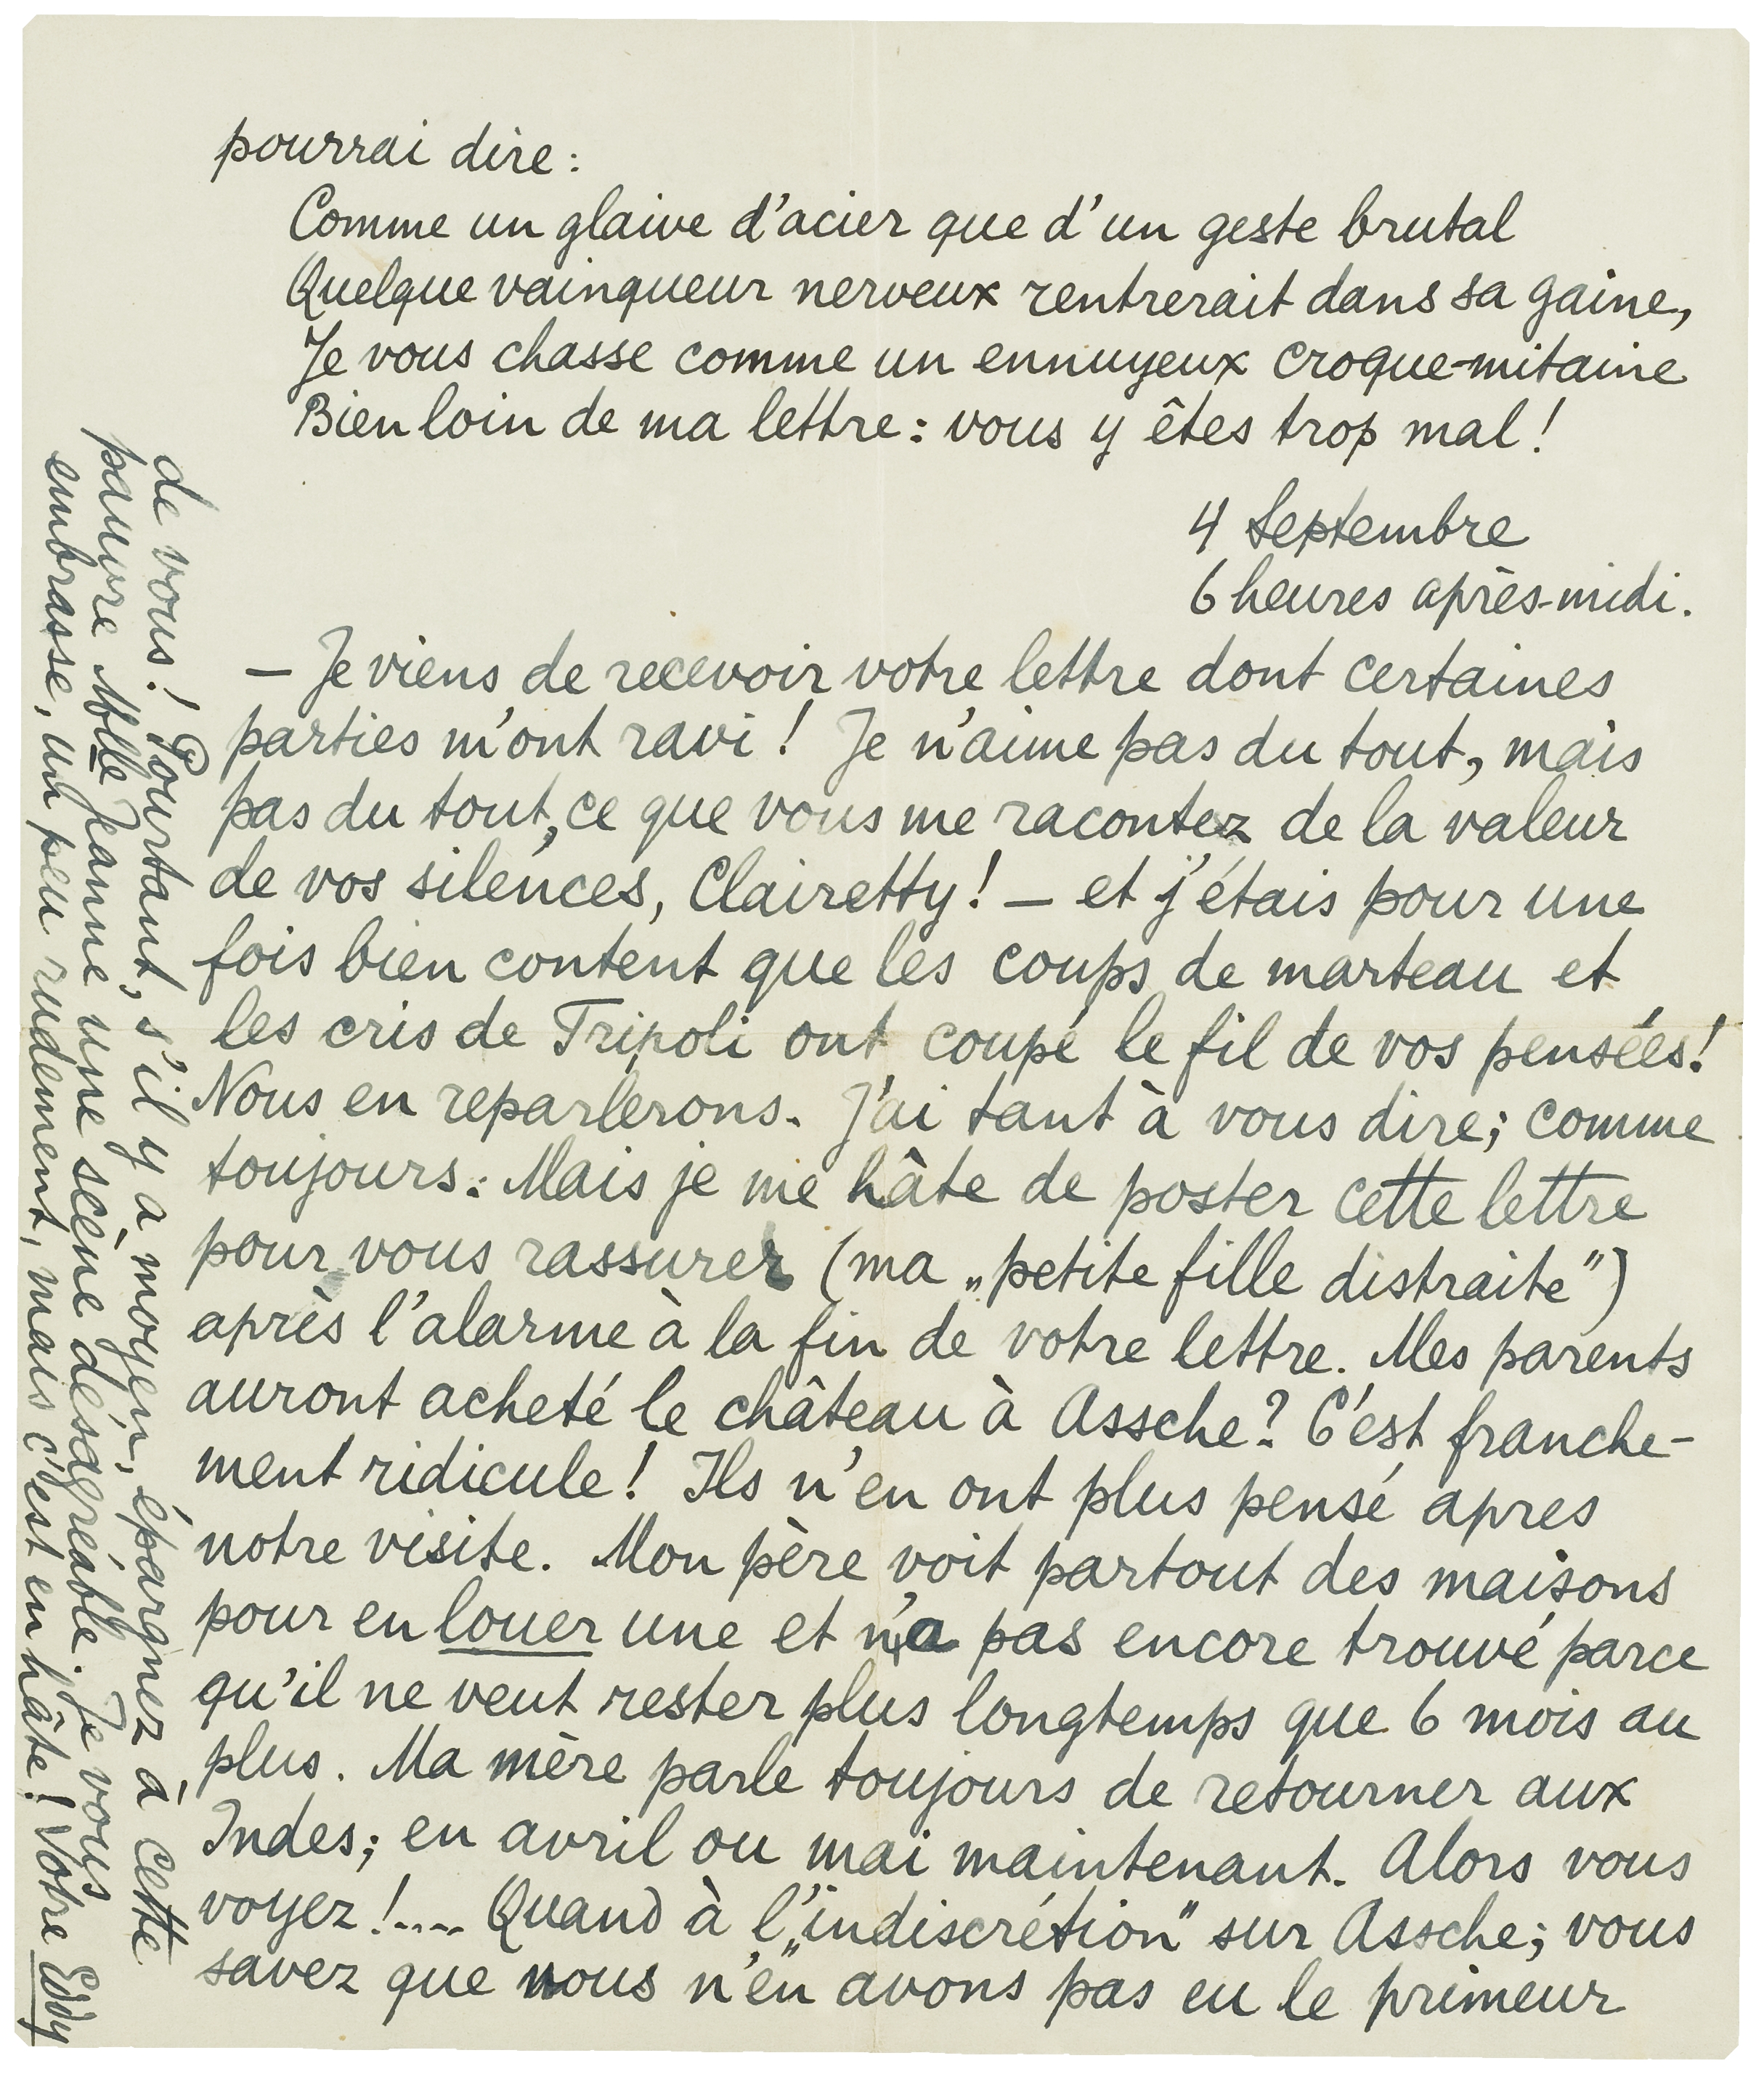 pourrai dire :
Comme un glaive d'acier que d'un geste brutal
Quelque vainqueur nerveux rentrerait dans sa gaine,
Je vous chasse comme un ennuyeux croque-mitaine
Bien loin de ma lettre : vous y êtes trop mal !
4 Septembre
6 heures après-midi.
— Je viens de recevoir votre lettre dont certaines
parties m'ont ravi ! Je n'aime pas du tout, mais
pas du tout, ce que vous me racontez de la valeur
de vos silences, Clairetty ! — et j'étais pour une
fois bien content que les coups de marteau et
les cris de Tripoli ont coupé le fil de vos pensées !
Nous en reparlerons. J'ai tant à vous dire ; comme
toujours. Mais je me hâte de poster cette lettre
pour vous rassurer (ma „petite fille distraite")
après l'alarme à la fin de votre lettre. Mes parents
auront acheté le château à Assche ? C'est franche-
ment ridicule ! Ils n'en ont plus pensé apres
notre visite. Mon père voit partout des maisons
pour en louer une et n'a pas encore trouvé parce
qu'il ne veut rester plus longtemps que 6 mois au
plus. Ma mère parle toujours de retourner aux
Indes ; en avril ou mai maintenant. Alors vous
voyez !.... Quand à l'„indiscrétion" sur Assche ; vous
savez que nous n'en avons pas eu le primeur
de vous ! Pourtant, s'il y a moyen, épargnez à cette
pauvre Mlle Jeanne une scène désagréable. Je vous
embrasse, un peu rudement, mais c'est en hâte ! Votre Eddy